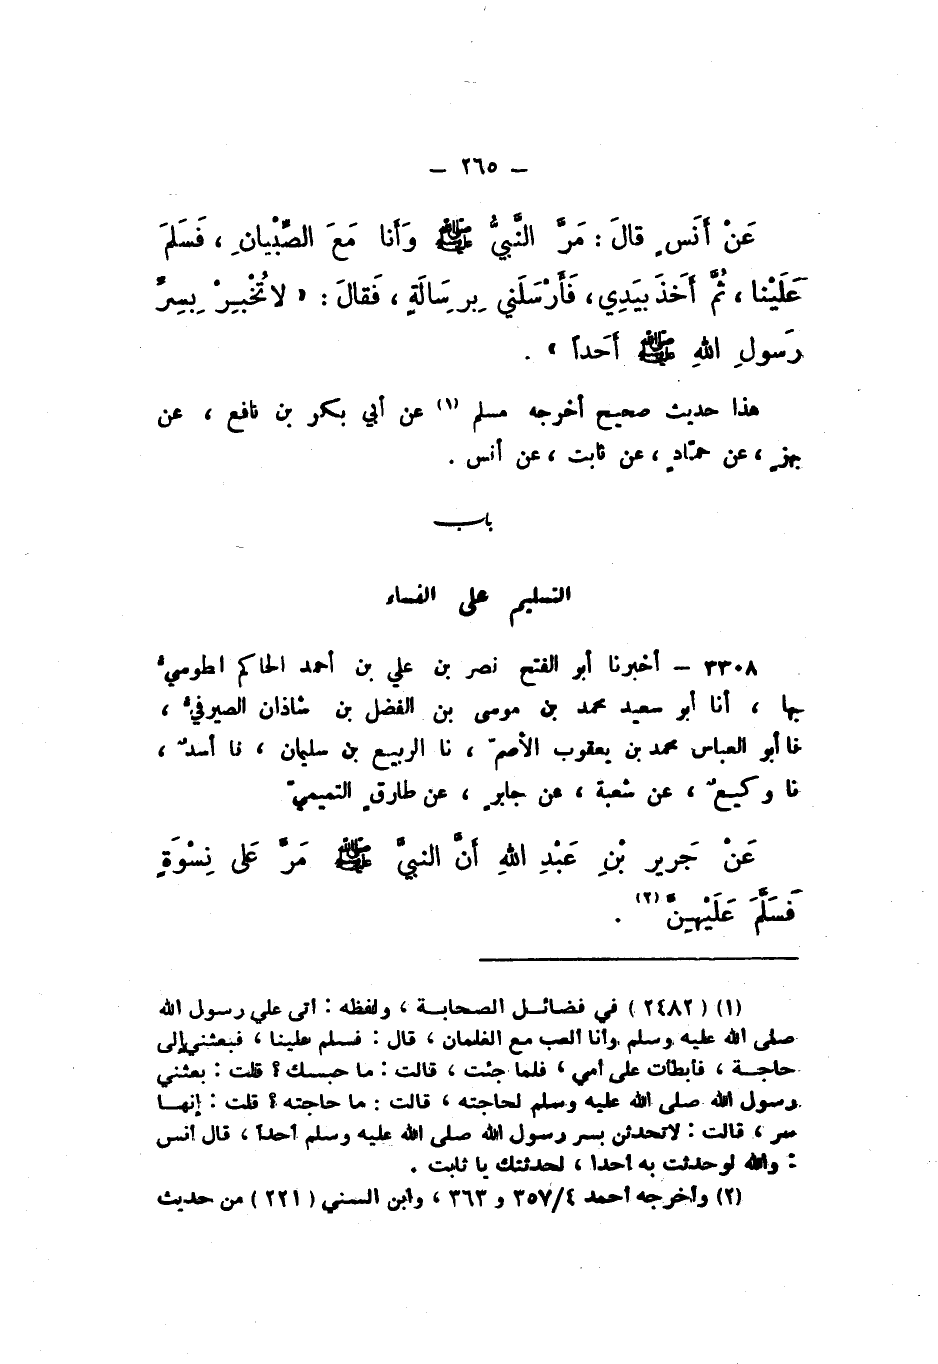 – ٢٦٥ –
عَنْ أَنَسٍ قالَ : مَرَّ النَّبيُّ ﷺ وَأَنا مَعَ الصِّبْيانِ ، فَسَلَمَ
عَلَيْنا ، ثُمَّ أَخَذَ بيَدِي ، فَأَرْسَلَني بِرِسَالَةٍ ، فَقالَ : « لا تُخْبِرْ بِسِرِّ
رَسولِ اللهِ ﷺ أَحَداً » .
هذا حديث صحيح أخرجه مسلم (١) عن أبي بكر بن نافع ، عن
بهزٍ ، عن حمّادٍ ، عن ثابت ، عن أنس .
باب
التسليم على النساء
٣٣٠٨ – أخبرنا أبو الفتح نصر بن علي بن أحمد الحاكم الطوسيُّ
بها ، أنا أبو سعيد محمد بن موسى بن الفضل بن شاذان الصيرفيُّ ،
نا أبو العباس محمد بن يعقوب الأصمّ ، نا الربيع بن سليمان ، نا أسدٌ ،
نا وكيعٌ ، عن شعبة ، عن جابرٍ ، عن طارقٍ التميميّ
عَنْ جَريرِ بْنِ عَبْدِ اللهِ أَنَّ النبيَّ ﷺ مَرَّ عَلى نِسْوَةٍ
فَسَلَّمَ عَلَيْهِنَّ (٢) .
(١) ( ٢٤٨٢ ) في فضائل الصحابة ، ولفظه : أتى علي رسول الله
صلى الله عليه وسلم وأنا ألعب مع الغلمان ، قال : فسلم علينا ، فبعثني إلى
حاجة ، فأبطأت على أمي ، فلما جئت ، قالت : ما حبسك ؟ قلت : بعثني
رسول الله صلى الله عليه وسلم لحاجته ، قالت : ما حاجته ؟ قلت : إنها
سر ، قالت : لا تحدثن بسر رسول الله صلى الله عليه وسلم أحداً ، قال أنس
: والله لو حدثت به أحدا ، لحدثتك يا ثابت .
(٢) وأخرجه أحمد ٣٥٧/٤ و ٣٦٣ ، وابن السني ( ٢٢١ ) من حديث